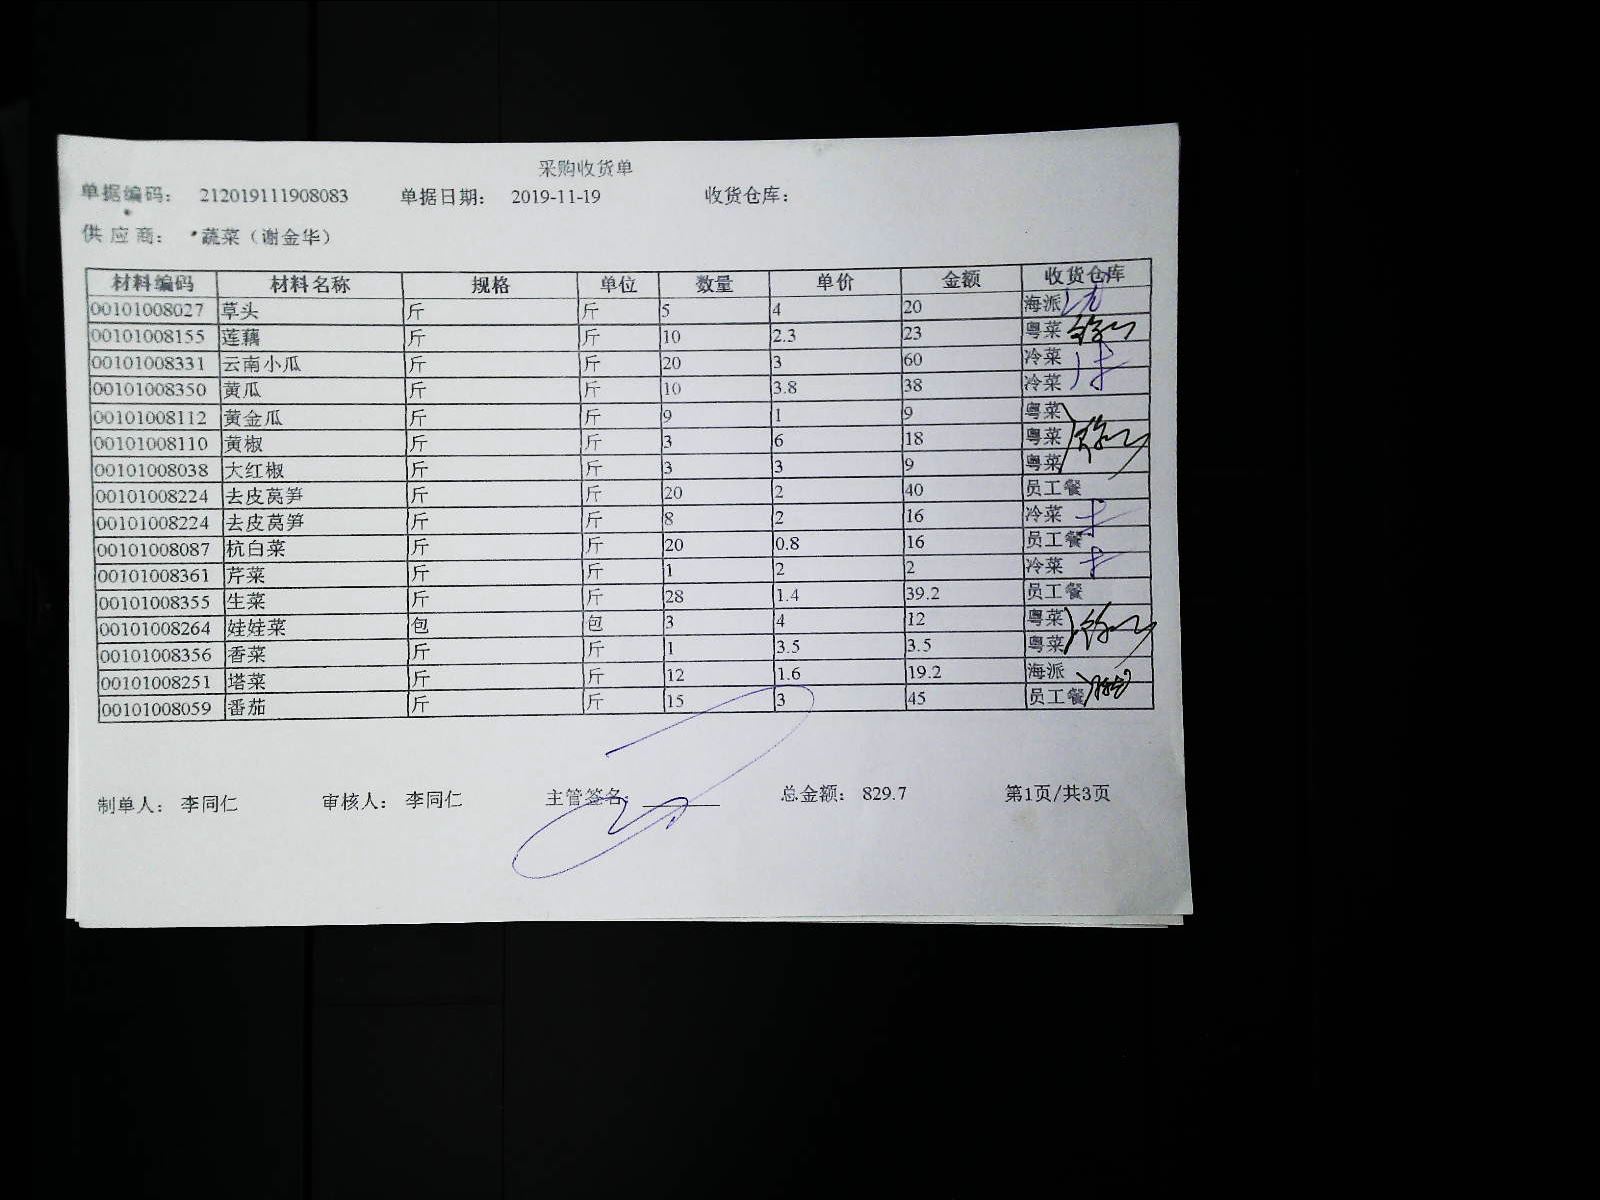 采购收货单
单据编码： 212019111908083 单据日期： 2019-11-19 收货仓库：
供应商： 蔬菜（谢金华）
材料编码 材料名称 规格 单位 数量 单价 金额 收货仓库
00101008027 草头 斤 斤 5 4 20 海派
00101008155 莲藕 斤 斤 10 2.3 23 粤菜
00101008331 云南小瓜 斤 斤 20 3 60 冷菜
00101008350 黄瓜 斤 斤 10 3.8 38 冷菜
00101008112 黄金瓜 斤 斤 9 1 9 粤菜
00101008110 黄椒 斤 斤 3 6 18 粤菜
00101008038 大红椒 斤 斤 3 3 9 粤菜
00101008224 去皮莴笋 斤 斤 20 2 40 员工餐
00101008224 去皮莴笋 斤 斤 8 2 16 冷菜
00101008087 杭白菜 斤 斤 20 0.8 16 员工餐
00101008361 芹菜 斤 斤 1 2 2 冷菜
00101008355 生菜 斤 斤 28 1.4 39.2 员工餐
00101008264 娃娃菜 包 包 3 4 12 粤菜
00101008356 香菜 斤 斤 1 3.5 3.5 粤菜
00101008251 塔菜 斤 斤 12 1.6 19.2 海派
00101008059 番茄 斤 斤 15 3 45 员工餐
制单人： 李同仁 审核人： 李同仁 主管签名： 总金额： 829.7 第1页/共3页